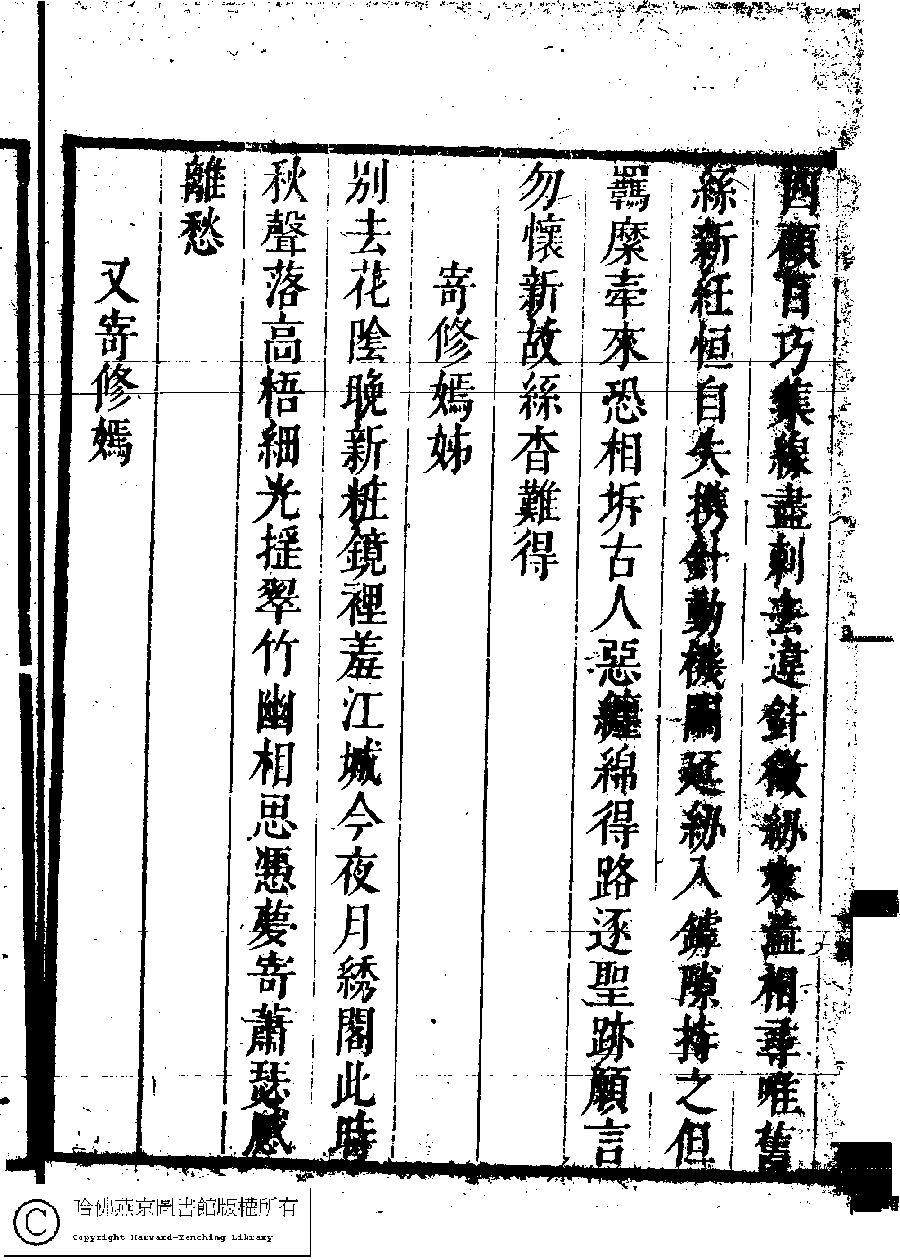 四顧盲巧集線盡刺去違針徵紛來益相尋唯舊
絲新紝恒自失撝針動機關延紛入鏬隙持之但
羈縻牽來恐相坼古人惡纏綿得路逐聖跡願言
勿懷新故絲杳難得
寄修嫣姊
別去花陰晚新粧鏡裡羞江城今夜月綉閣此時
秋聲落高梧細光搖翠竹幽相思憑夢寄蕭瑟感
離愁
又寄修嫣
哈佛燕京圖書館版權所有
Copyright Harvard-Yenching Library